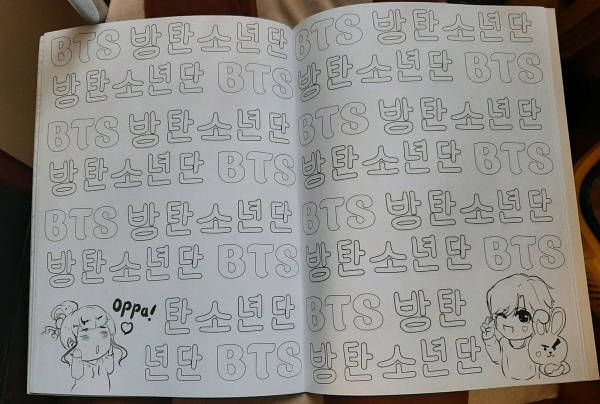 BTS 방탄소년단
방탄소년단 BTS
BTS 방탄소년단
방탄소년단 BTS
BTS 방탄소년단
방탄소년단 BTS
Oppa! 탄소년단
년단 BTS
BTS 방탄소년단
방탄소년단 BTS
BTS 방탄소년단
방탄소년단 BTS
BTS 방탄소년단
방탄소년단 BTS
BTS 방탄
방탄소년단